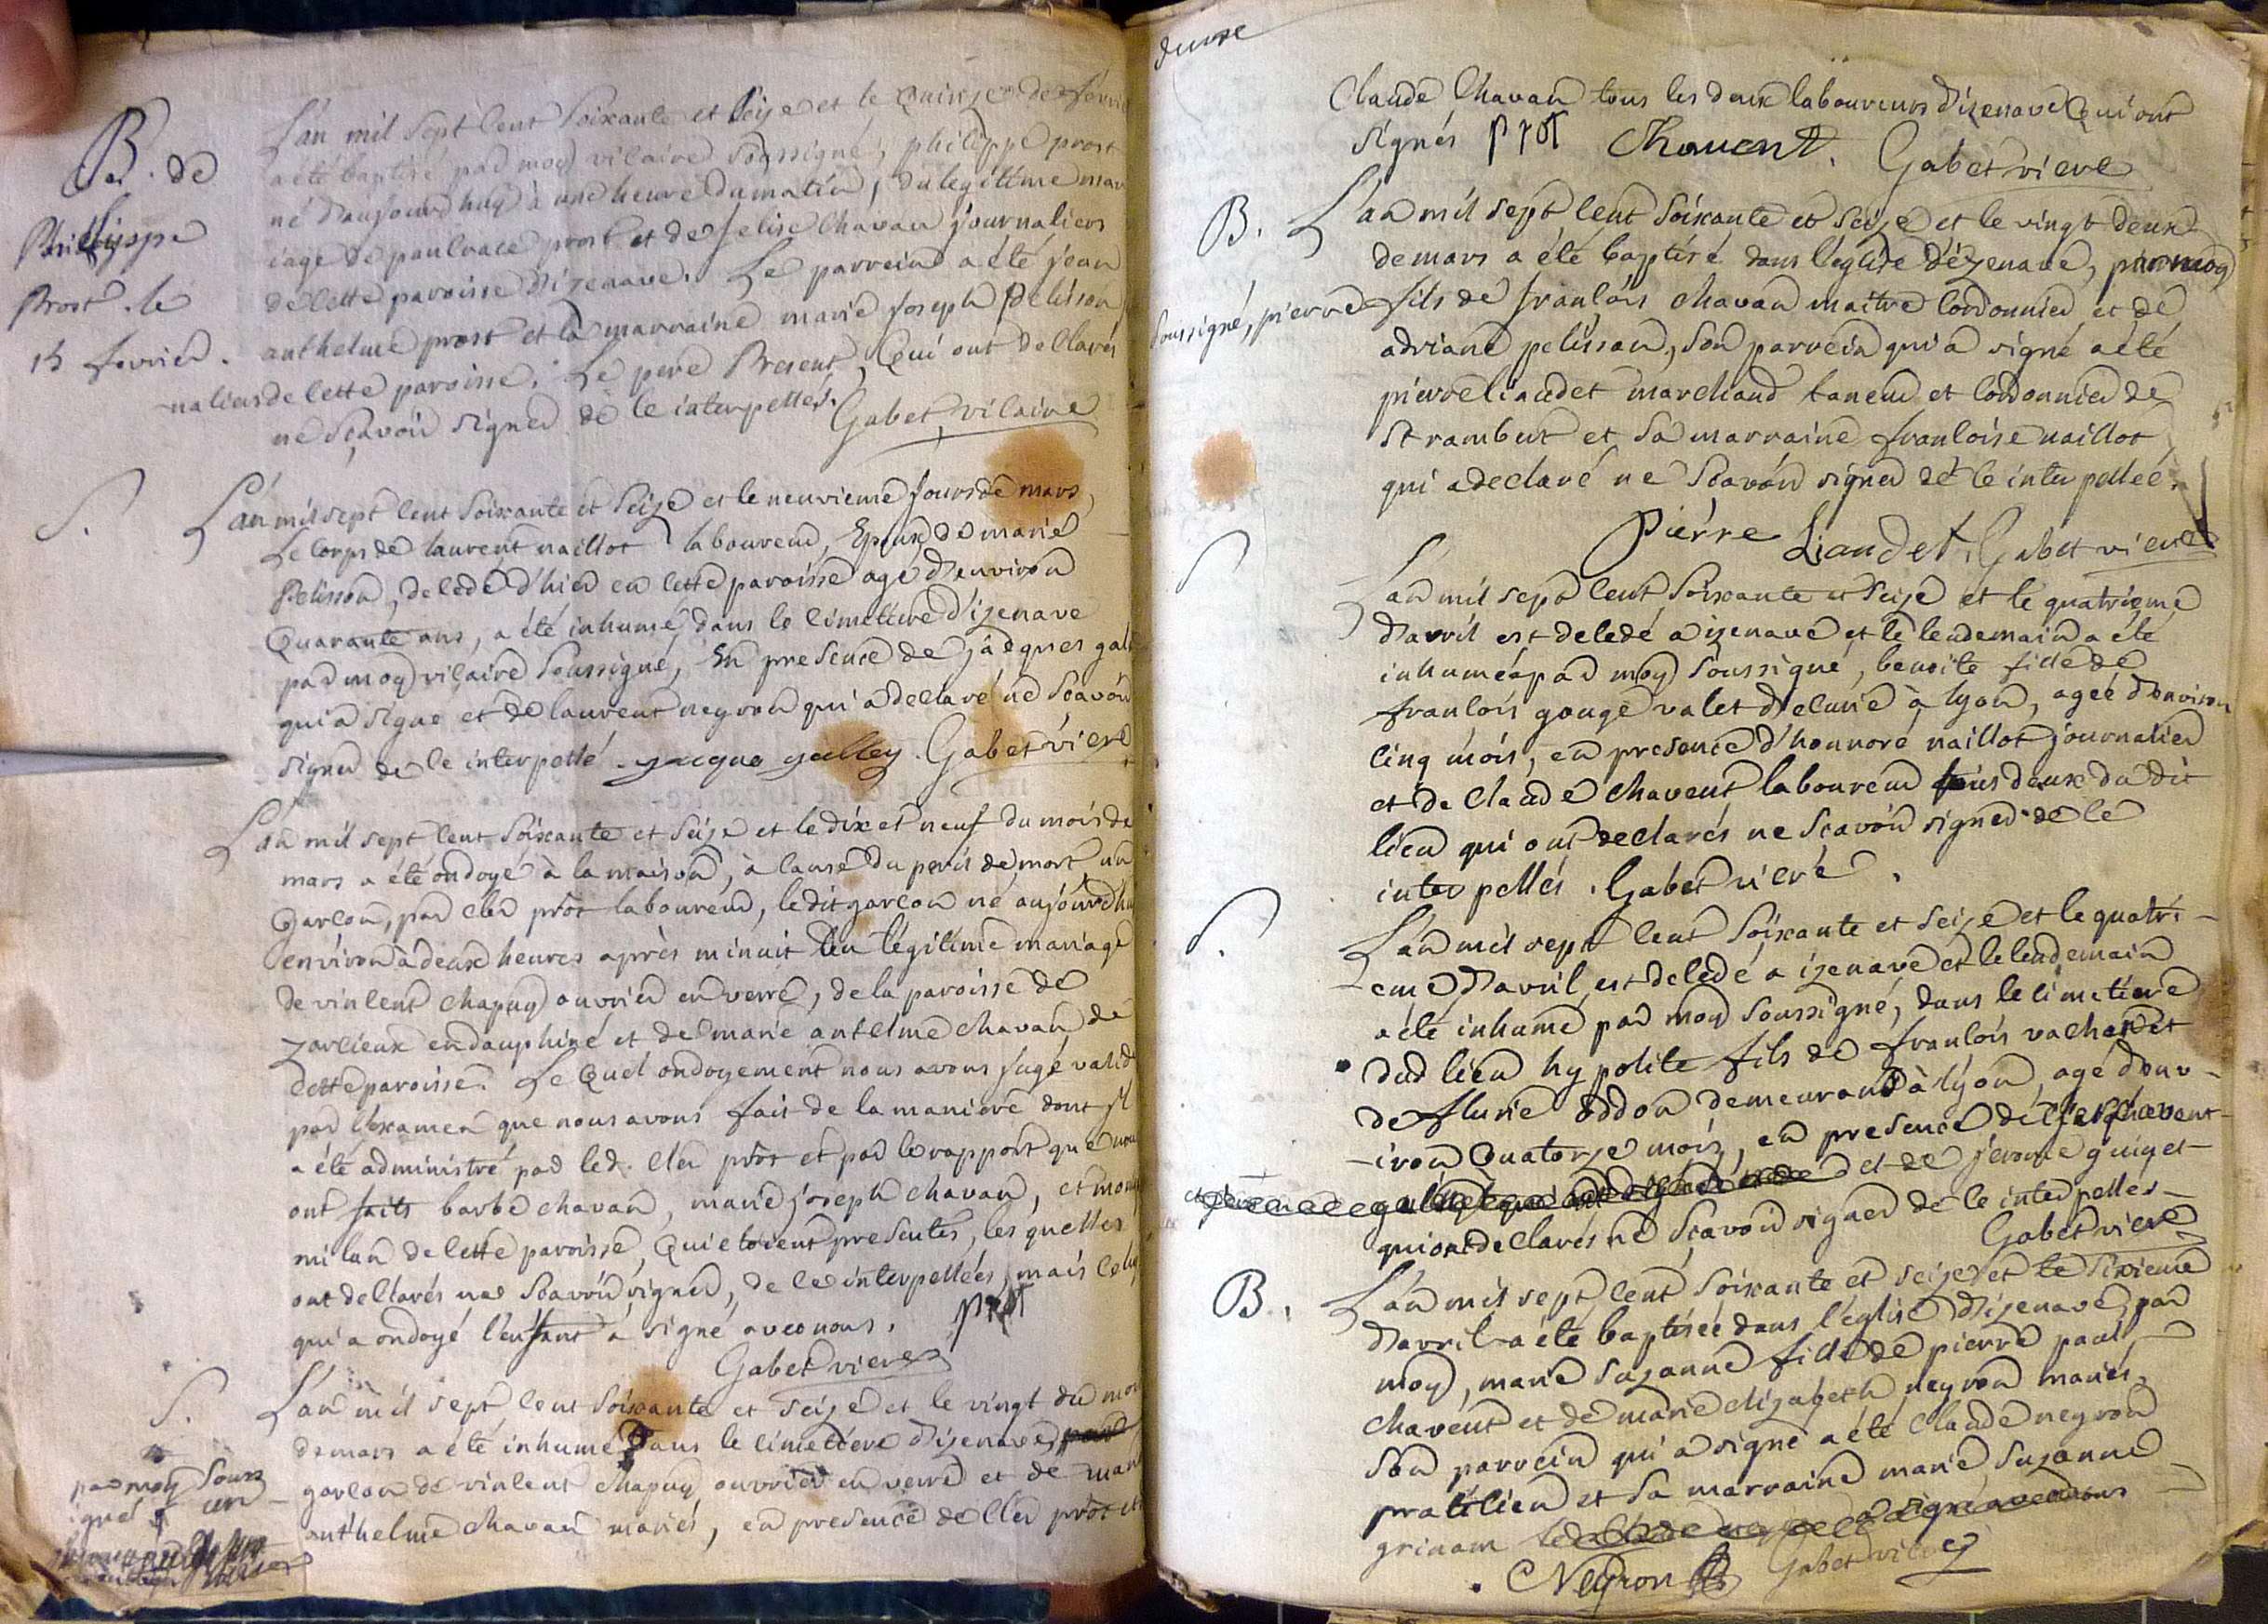 B. de
Philippe
Prost. le
15 fevrier.
L'an mil sept cent soixante et seize et le quinze de fevrie
a été baptisé par moy vicaire soussigné, philippe prost
né d'aujourd'huy à une heure du matin, du legitime mar
iage de paul prost et de felise Chavan journaliers
de cette paroisse d'izenave. Le parrein a été jean
anthelme prost et la marraine marie joseph Pelisson
-naliers de cette paroisse. Le pere Present, qui ont declarés
ne sçavoir signer de ce interpellés. Gabet vicaire
S.
L'an mil sept cent soixante et seize et le neuvieme jours de mars,
Le corps de laurent naillot laboureur, Epoux de marie
Pelisson, decede d'hier en cette paroisse agé d'environ
quarante ans, a été inhumé dans le cimettiere d'izenave
par moy vicaire soussigné, En presence de jacques gal
qui a signé et de laurent neyron qui a declaré ne sçavoir
signer de ce interpellé. jacque galley. Gabet vicre
L'an mil sept cent soixante et seize et le dix et neuf du mois de
mars a été ondoyé à la maison, à cause du peril de mort, un
garçon, par cler prost laboureur, ledit garcon né aujourd'hu
environ à deux heures après minuit du légitime mariage
de vincent chapuy ouvrier en verre, de la paroisse de
en dauphiné et de marie antelme chavan de
cette paroisse. Le quel ondoyement nous avons jugé valid
par l'examen que nous avons fait de la maniere dont il
a été administré par led. cler prôt et par le rapport que nou
ont faits barbe chavan, marie joseph chavan, et
milan de cette paroisse, qui etoient presentes, les quelles
ont declarés ne sçavoir signer, de ce interpellées, mais celuy
qui a ondoyé l'enfant a signé avec nous. prôt
Gabet vicre
S.
L'an mil sept cent soixante et seize et le vingt du moi
de mars a été inhumé dans le cimettiere d'izenave, par
par moy souss
igné un
garcon de vincent chapuy ouvrier en verre et de mari
anthelme chavan mariés, en presence de cler prôt et
Claude Chavan tous les deux laboureurs d'izenave qui ont
signés prôt Chavent. Gabet vicre
B.
L'an mil sept cent soixante et seize et le vingt deux
de mars a été baptisé dans l'église d'izenave, par moy
soussigné, pierre fils de françois chavan maitre cordonnier et de
adriane pelissan, son parrein qui a signé a été
pierre liaudet marchand taneur et cordonnier de
St rambert et sa marraine françoise naillot
qui a declaré ne sçavoir signer de ce interpellée.
Pierre Liaudet. Gabet vicre
S
L'an mil sept cent soixante et seize et le quatrieme
d'avril est decedé a izenave et le lendemain a été
inhumée par moy soussigné, benoite fille de
françois gouge valet d'ecurie à lyon, agée d'environ
cinq mois, en presence d'honnoré naillot journalier
et de claude chavent laboureur tous deux du dit
lieu qui ont declarés ne sçavoir signer de ce
interpellés. Gabet vicre.
S.
L'an mil sept cent soixante et seize et le quatri-
eme d'avril, est decedé a izenave et le lendemain
a été inhumé par moy soussigné, dans le cimetiere
dud lieu hypolite fils de françois vachardet
de flurie oddon demeurant à lyon, agé d'env-
-iron quatorze mois, en presence de chavent
et de jerome guiget
qui ont declarés ne sçavoir signer de ce interpellés-
Gabet vicre
B.
L'an mil sept cent soixante et seize et le sixieme
d'avril a été baptisée dans l'église d'izenave, par
moy, marie suzanne fille de pierre paul
chavent et de marie elizabeth neyron mariés,
son parrein qui a signé a été claude neyron
praticien et sa marraine marie suzanne
grinam
Neyron Gabet vicre